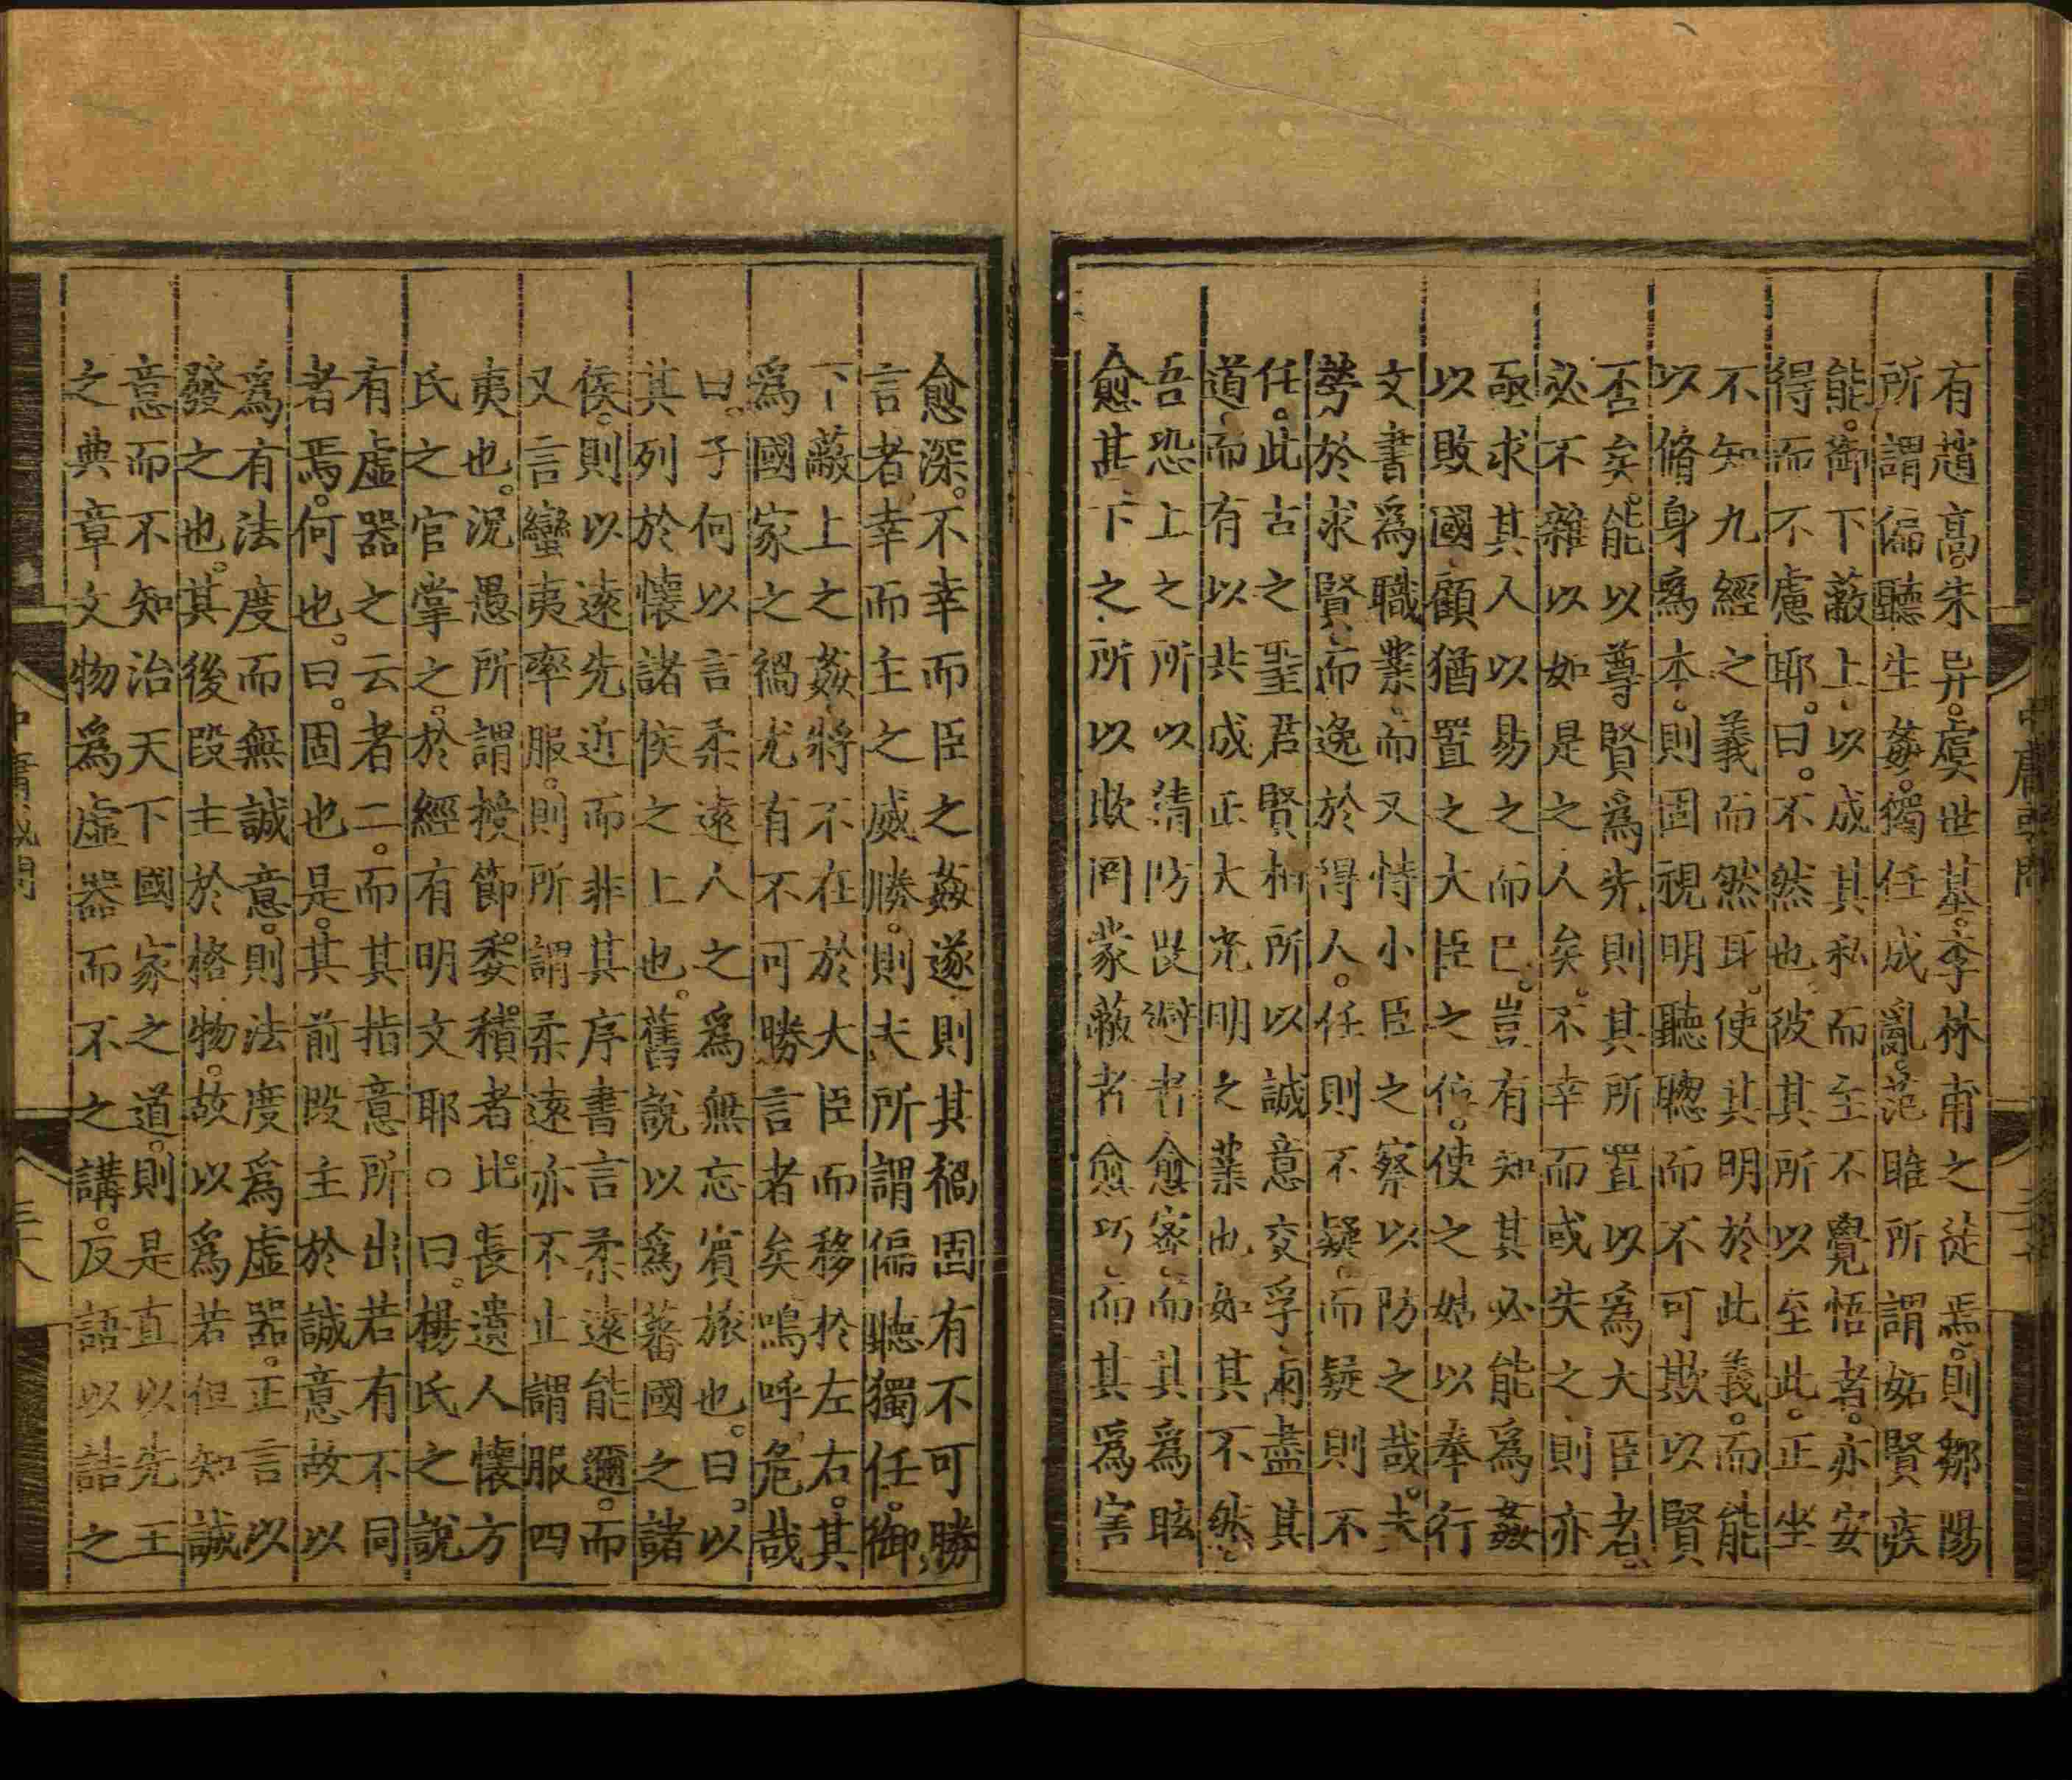 有趙高。朱异。虞世基。李林甫之徒焉。則鄒陽
所謂偏聽生姦。獨任成亂。范雎所謂妬賢疾
能。御下蔽上。以成其私而至不覺悟者。亦安
得而不慮耶。曰。不然也。彼其所以至此。正坐
不知九經之義而然耳。使其明於此義。而能
以脩身爲本。則固視明聽聰而不可欺以賢
否矣。能以尊賢爲先。則其所置以爲大臣者。
必不雜以如是之人矣。不幸而或失之則亦
亟求其人以易之而已。豈有知其必能爲姦
以敗國顧猶置之大臣之位。使之姑以奉行
文書爲職業。而又恃小臣之察以防之哉。夫
勞於求賢。而逸於得人。任則不疑。而疑則不
任。此古之聖君賢相所以誠意交孚兩盡其
道。而有以共成正大光明之業也如其不然。
吾恐上之所以猜防畏避者愈密。而其爲眩
愈甚。下之所以欺罔蒙蔽者愈巧。而其爲害
愈深。不幸而臣之姦遂則其禍固有不可勝
言者幸而主之威勝。則夫所謂偏聽獨任。御
下蔽上之姦將不在於大臣而移於左右。其
爲國家之禍尤有不可勝言者矣嗚呼危哉
曰。子何以言柔遠人之爲無忘賓旅也。曰。以
其列於懷諸侯之上也。舊說以爲蕃國之諸
侯。則以遠先近而非其序書言柔遠能邇。而
又言蠻夷率服。則所謂柔遠亦不止謂服四
夷也。況愚所謂授節。委積者比長遺人懷方
氏之官掌之。於經有明文耶。○曰。楊氏之說
有虛器之云者二。而其指意所出若有不同
者焉。何也。曰。固也是。其前段主於誠意故以
爲有法度而無誠意。則法度爲虛器。正言以
發之也。其後段主於格物。故以爲若但知誠
意而不知治天下國家之道。則是直以先王
之典章文物爲虛器而不之講。反語以詰之
中庸或問
中庸或問
三十八